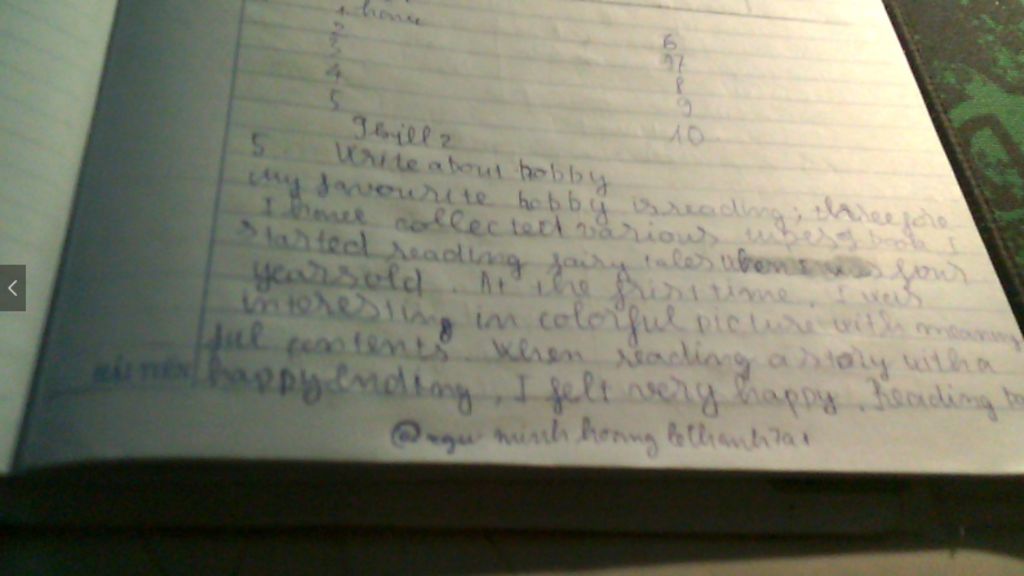 1. 
2
3 6
4 8
5 9
10
5 Write about hobby
My favourite hobby is reading; threefore
I have collected various book I
started reading fairy tales when I was four
years old. At the frist time, I was
interesting in colorful picture with meaning
ful contents. When reading a story with a
happy ending, I felt very happy. Reading
minh hoang